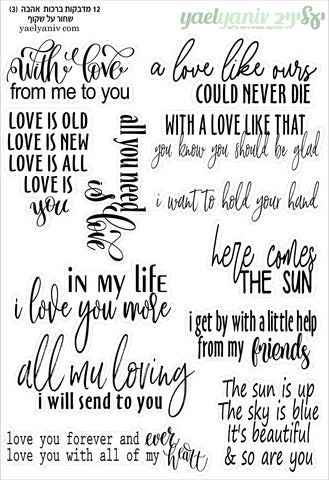 12 מדבקות ברכות אהבה (3)
שחור על שקוף
yaelyaniv.com
יעל יניב
yaelyaniv
with love
from me to you
a love like ours
COULD NEVER DIE
LOVE IS OLD
LOVE IS NEW
LOVE IS ALL
LOVE IS
you
all you need
is love
WITH A LOVE LIKE THAT
you know you should be glad
i want to hold your hand
here comes
THE SUN
in my life
i love you more
i get by with a little help
from my friends
all my loving
i will send to you
The sun is up
The sky is blue
It's beautiful
& so are you
love you forever and ever
love you with all of my heart